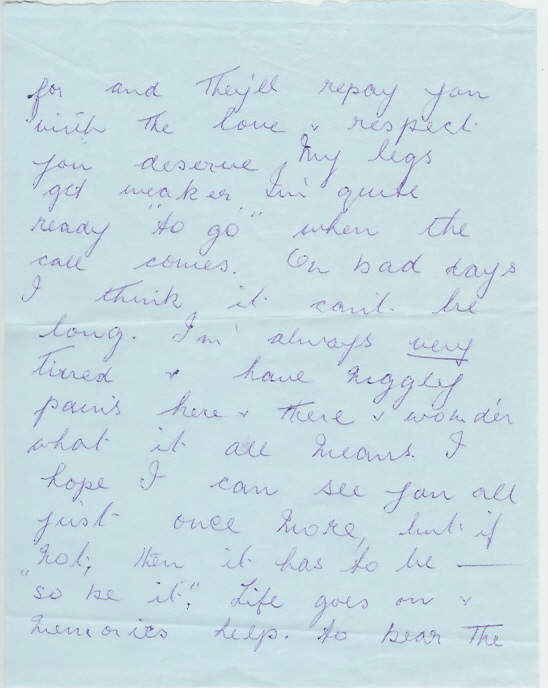 for and they'll repay you
with the love & respect
you deserve. My legs
get weaker. I'm quite
ready "to go" when the
call comes. On bad days
I think it can't be
long. I'm always very
tired & have niggley
pains here & there & wonder
what it all means. I
hope I can see you all
just once more, but if
not, then it has to be —
"so be it". Life goes on &
memories help. to bear the